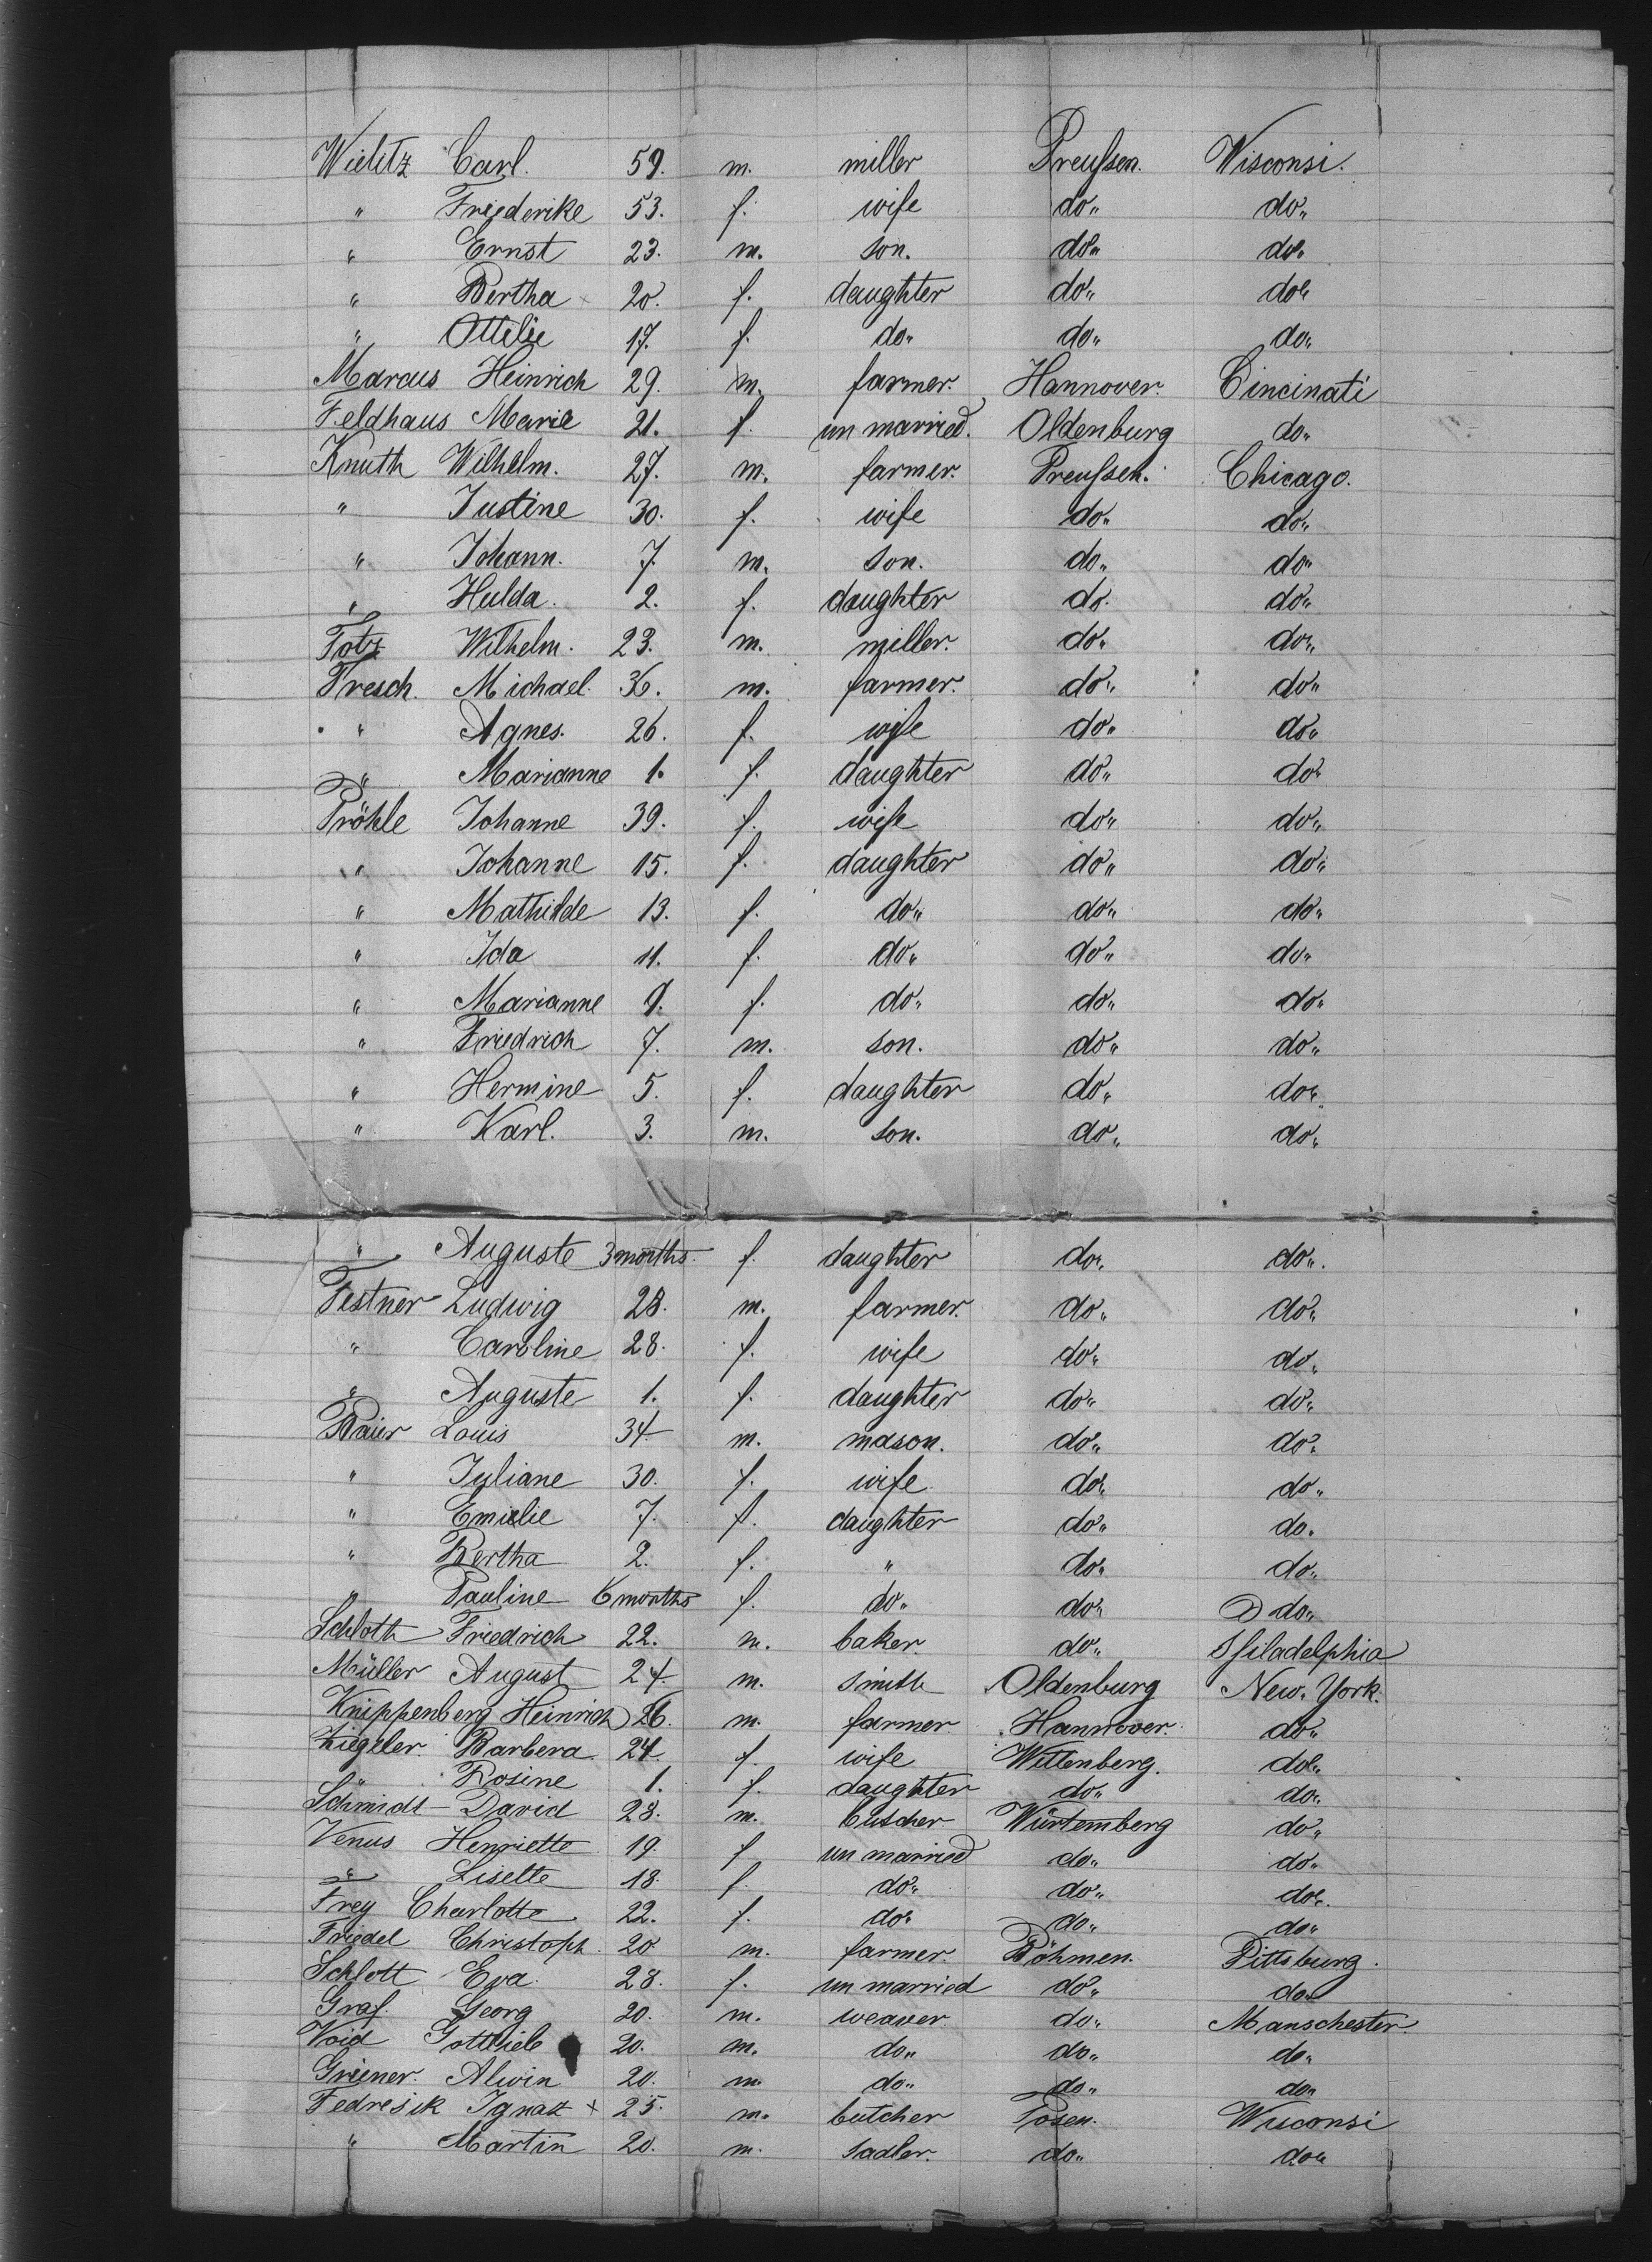 Wielitz Carl. 59. m. miller Preußen. Wisconsi.
" Friederike 53. f. wife do" do"
" Ernst 23. m. son. do" do"
" Bertha 20. f. daughter do" do"
" Ottilie 17. f. do" do" do"
Marcus Heinrich 29. m. farmer. Hannover. Cincinati
Feldhaus Marie 21. f. un married. Oldenburg do"
Knuth Wilhelm. 27. m. farmer. Preußen. Chicago.
" Justine 30. f. wife do" do"
" Johann. 7. m. son. do" do"
" Hulda. 2. f. daughter do. do"
Totz Wilhelm. 23. m. miller. do" do"
Tresch. Michael. 36. m. farmer. do" do"
" Agnes. 26. f. wife do" do"
" Marianne 1. f. daughter do" do"
Pröhle Johanne 39. f. wife do" do"
" Johanne 15. f. daughter do" do"
" Mathilde 13. f. do" do" do"
" Ida 11. f. do" do" do"
" Marianne 9. f. do" do" do"
" Friedrich 7. m. son. do" do"
" Hermine 5. f. daughter do" do"
" Karl. 3. m. son. do" do"
" Auguste 3 months. f. daughter do" do".
Festner Ludwig 28. m. farmer. do" do"
" Caroline 28. f. wife do" do"
" Auguste 1. f. daughter do" do"
Baier Louis 34. m. mason. do" do"
" Juliane 30. f. wife do" do"
" Emielie 7. f. daughter do" do.
" Bertha 2. f. " do" do"
" Pauline 6 months f. do" do" do"
Schloth Friedrich 22. m. baker. do" Philadelphia
Müller August 24. m. smith Oldenburg New-York.
Knippenberg Heinrich 26. m. farmer Hannover. do"
Ziegeler. Barbera. 24. f. wife Wittenberg. do"
" Rosine 1. f. daughter do" do"
Schmidt David 28. m. butscher Würtemberg do"
Venus Henriette 19. f un married do" do"
" Liselte 18. f. do" do" do"
Frey Charlotte 22. f. do" do" do"
Friedel Christoph. 20. m. farmer. Böhmen. Pittsburg.
Schlott Eva. 28. f. un married do" do"
Graf. Georg 20. m. weaver. do" Manschester.
Void Gottlieb 20. m. do" do" do"
Griener. Alwin 20. m. do" do" do"
Fedresik Ignatz x 25. m. butcher Posen. Wisconsi
" Martin 20. m. sadler. do" do"